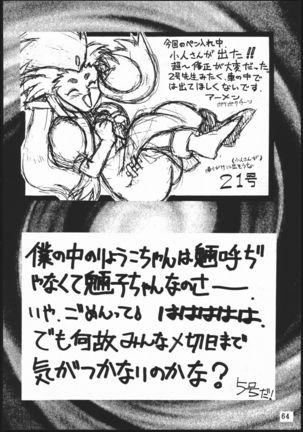 今回のペン入れ中
小人さんが出た!!
超〜修正が大変だった
2号先生みたく、車の中で
は出てほしくないです。
アーメン
21号
僕の中のりょうこちゃんは魎呼ぢ
ゃなくて魎子ちゃんなのさー
いや、ごめんってる ははははは
でも何故みんな〆切日まで
気がつかないのかな?
5号だ!
64